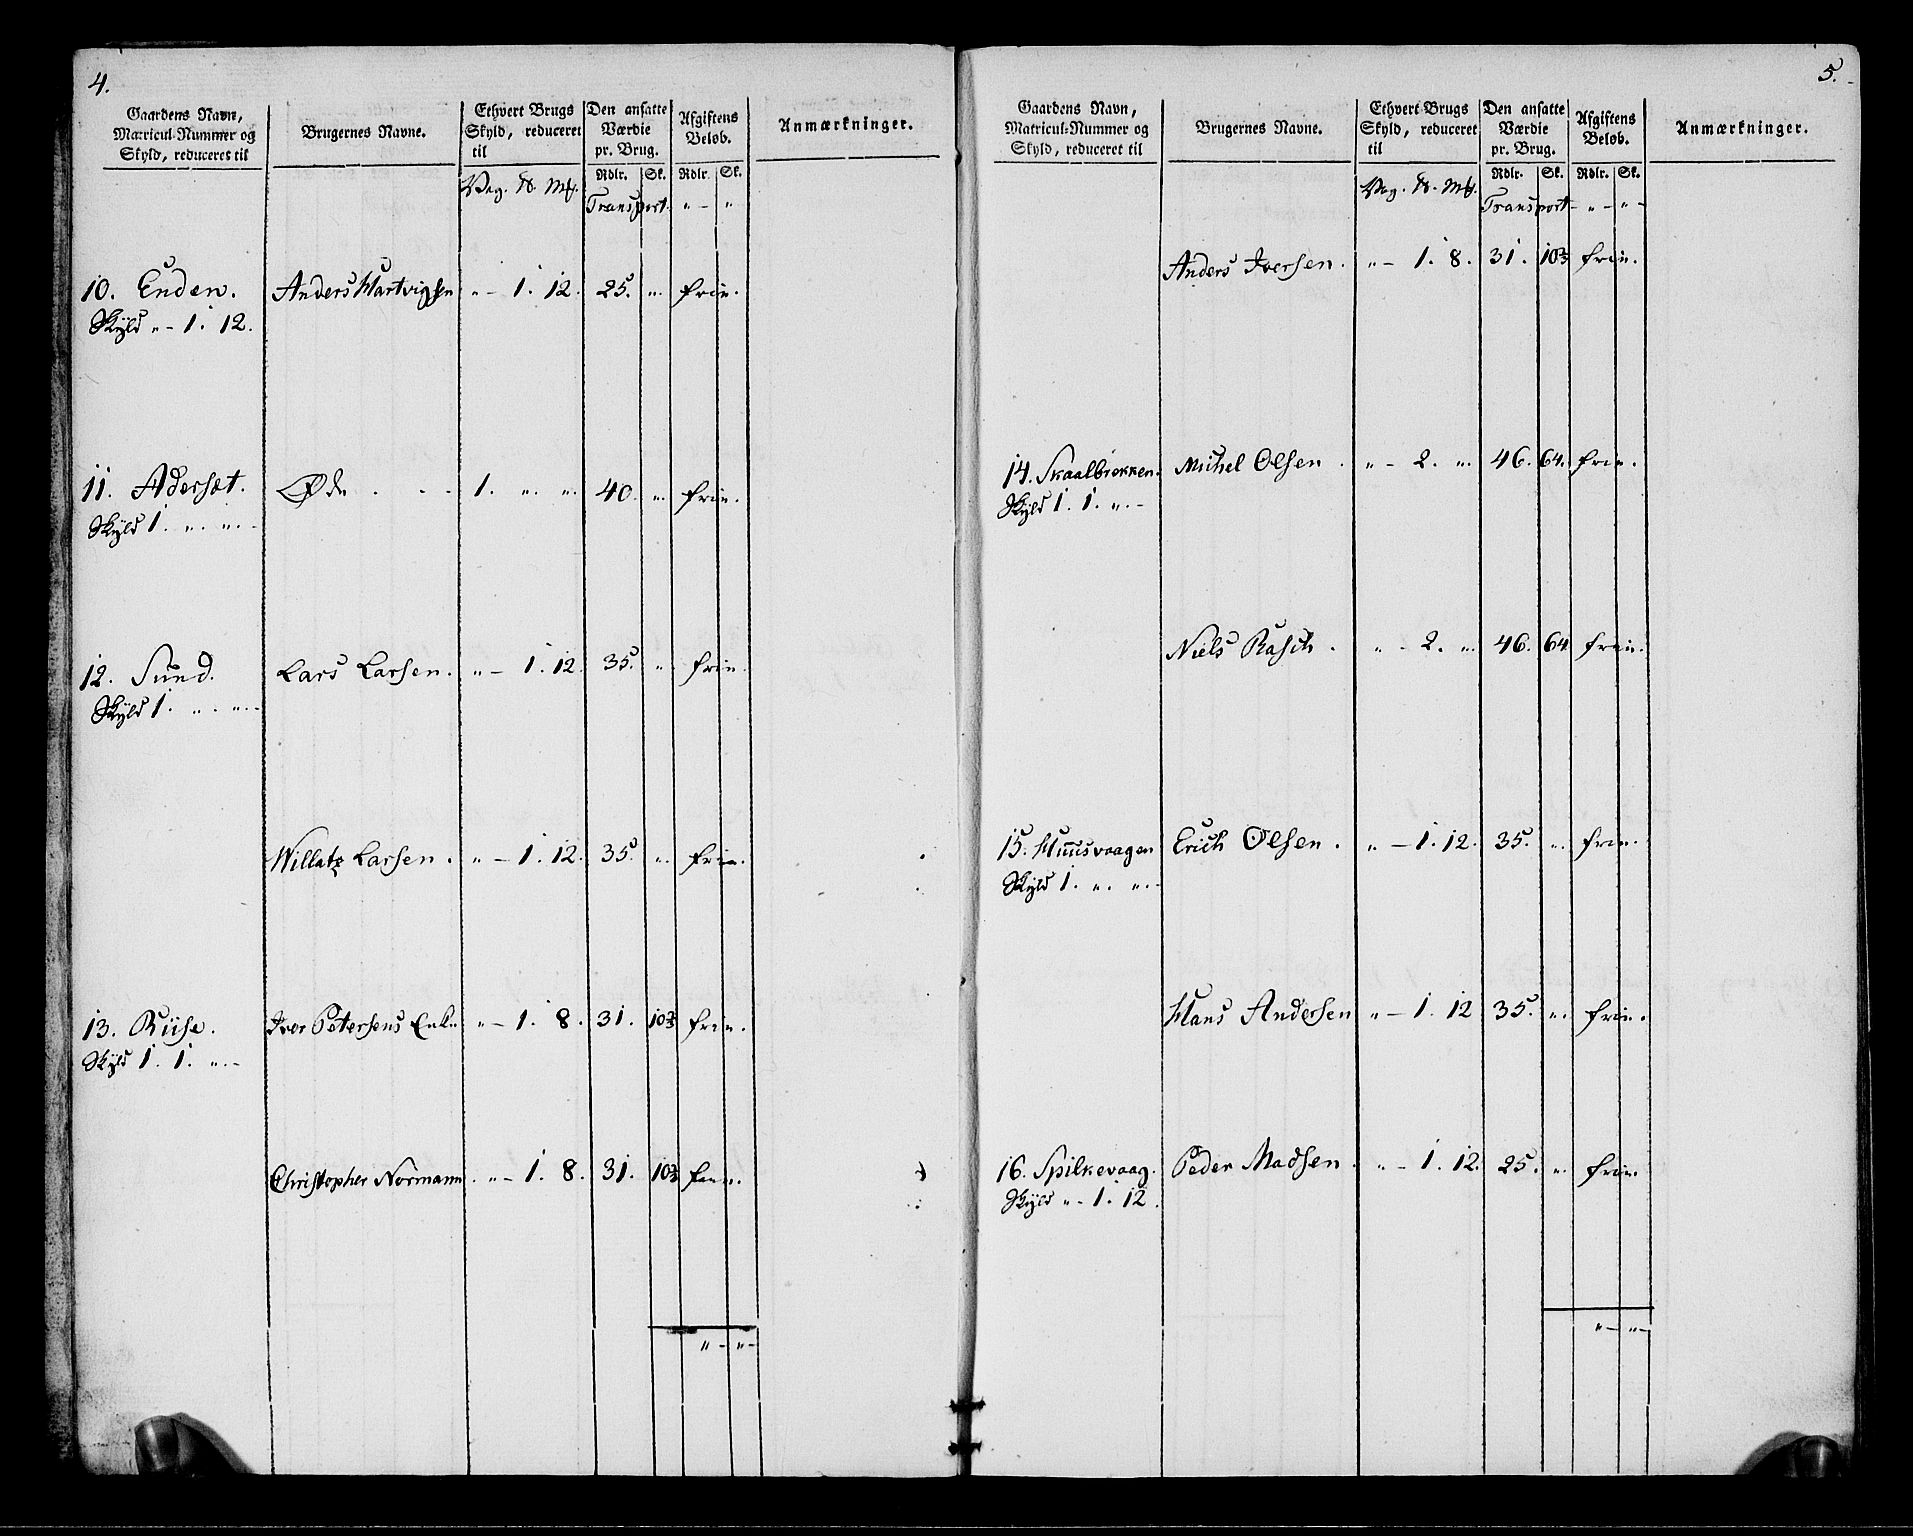 4.
Gaardens Navn, Matricul-Nummer og Skyld, reduceret til
Brugernes Navne.
Ethvert Brugs Skyld, reduceret til
Den ansatte Værdie pr. Brug.
Afgiftens Beløb.
Anmærkninger.
Vog. ℔. Mk. Rdlr. Sk. Rdlr. Sk.
Transport. " — "
10. Enden. Anders Hartvigsen " — 1. 12. 25. ". frie.
Skyld " — 1. 12.
11. Adersæt. Øde . . . 1. ". ". 40. ". frie.
Skyld 1. ". ". —
12. Sund. Lars Larsen. " — 1. 12. 35. ". frie.
Skyld 1. ". ". —
Willatz Larsen. " — 1. 12. 35. ". frie.
13. Riise. Iver Petersens Enke " — 1. 8. 31. 103 frie.
Skyld 1. 1. ". —
Christopher Normann. " — 1. 8. 31. 103 frie.
" — " —
5.
Gaardens Navn, Matricul-Nummer og Skyld, reduceret til
Brugernes Navne.
Ethvert Brugs Skyld, reduceret til
Den ansatte Værdie pr. Brug.
Afgiftens Beløb.
Anmærkninger.
Vog. ℔. Mk. Rdlr. Sk. Rdlr. Sk.
Transport — " — " —
Anders Iversen. " — 1. 8. 31. 103 frie.
14. Skaalbrekken. Michel Olsen. " — 2. ". 46. 64. frie.
Skyld 1. 1. ". —
Niels Rasch. " — 2. ". 46. 64 frie.
15. Huusvaagen Erich Olsen. " — 1. 12. 35. ". frie.
Skyld 1. ". ". —
Hans Andersen " — 1. 12 35. ". frie.
16. Spilkevaag. Peder Madsen. " — 1. 12. 25. ". frie.
Skyld " — 1. 12.
" — " —